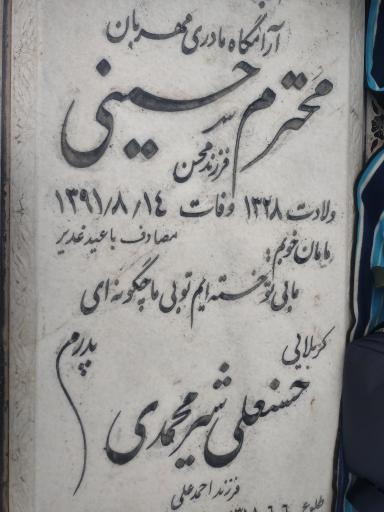 آرامگاه مادری مهربان
محترم حسینی
فرزند محسن
ولادت ۱۳۲۸ وفات ۱۳۹۱/۸/۱۴
مصادف با عید غدیر
مامان خوبم:
ما بی تو خسته ایم تو بی ما چگونه ای
پدرم
کربلایی
حسنعلی شیرمحمدی
فرزند احمدعلی
طلوع